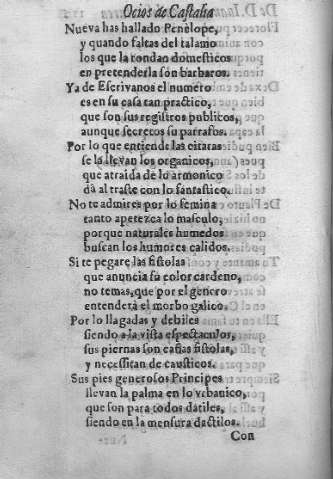 Ocios de Castalia
Nueva has hallado Penelope,
y quando faltas del talamo
los que la rondan domesticos
en pretenderla son barbaros.
Ya de Escrivanos el numero
es en su casa tan practico,
que son sus registros publicos,
aunque secretos su parrafos.
Por lo que entiende las citaras
se la llevan los organicos,
que atraida de lo armonico
dà al traste con lo fantastico.
No te admires por lo femina
tanto apetezca lo masculo,
porque naturales humedos
buscan los humores calidos.
Si te pegare las fistolas
que anuncia su color cardeno,
no temas, que por el genero
entenderà el morbo galico.
Por lo llagadas y debiles
siendo a la vista espectaculos,
sus piernas son cañas fistolas,
y necessitan de causticos.
Sus pies generosos Principes
llevan la palma en lo vrbanico,
que son para todos datiles,
siendo en la mensura dactilos.
Con